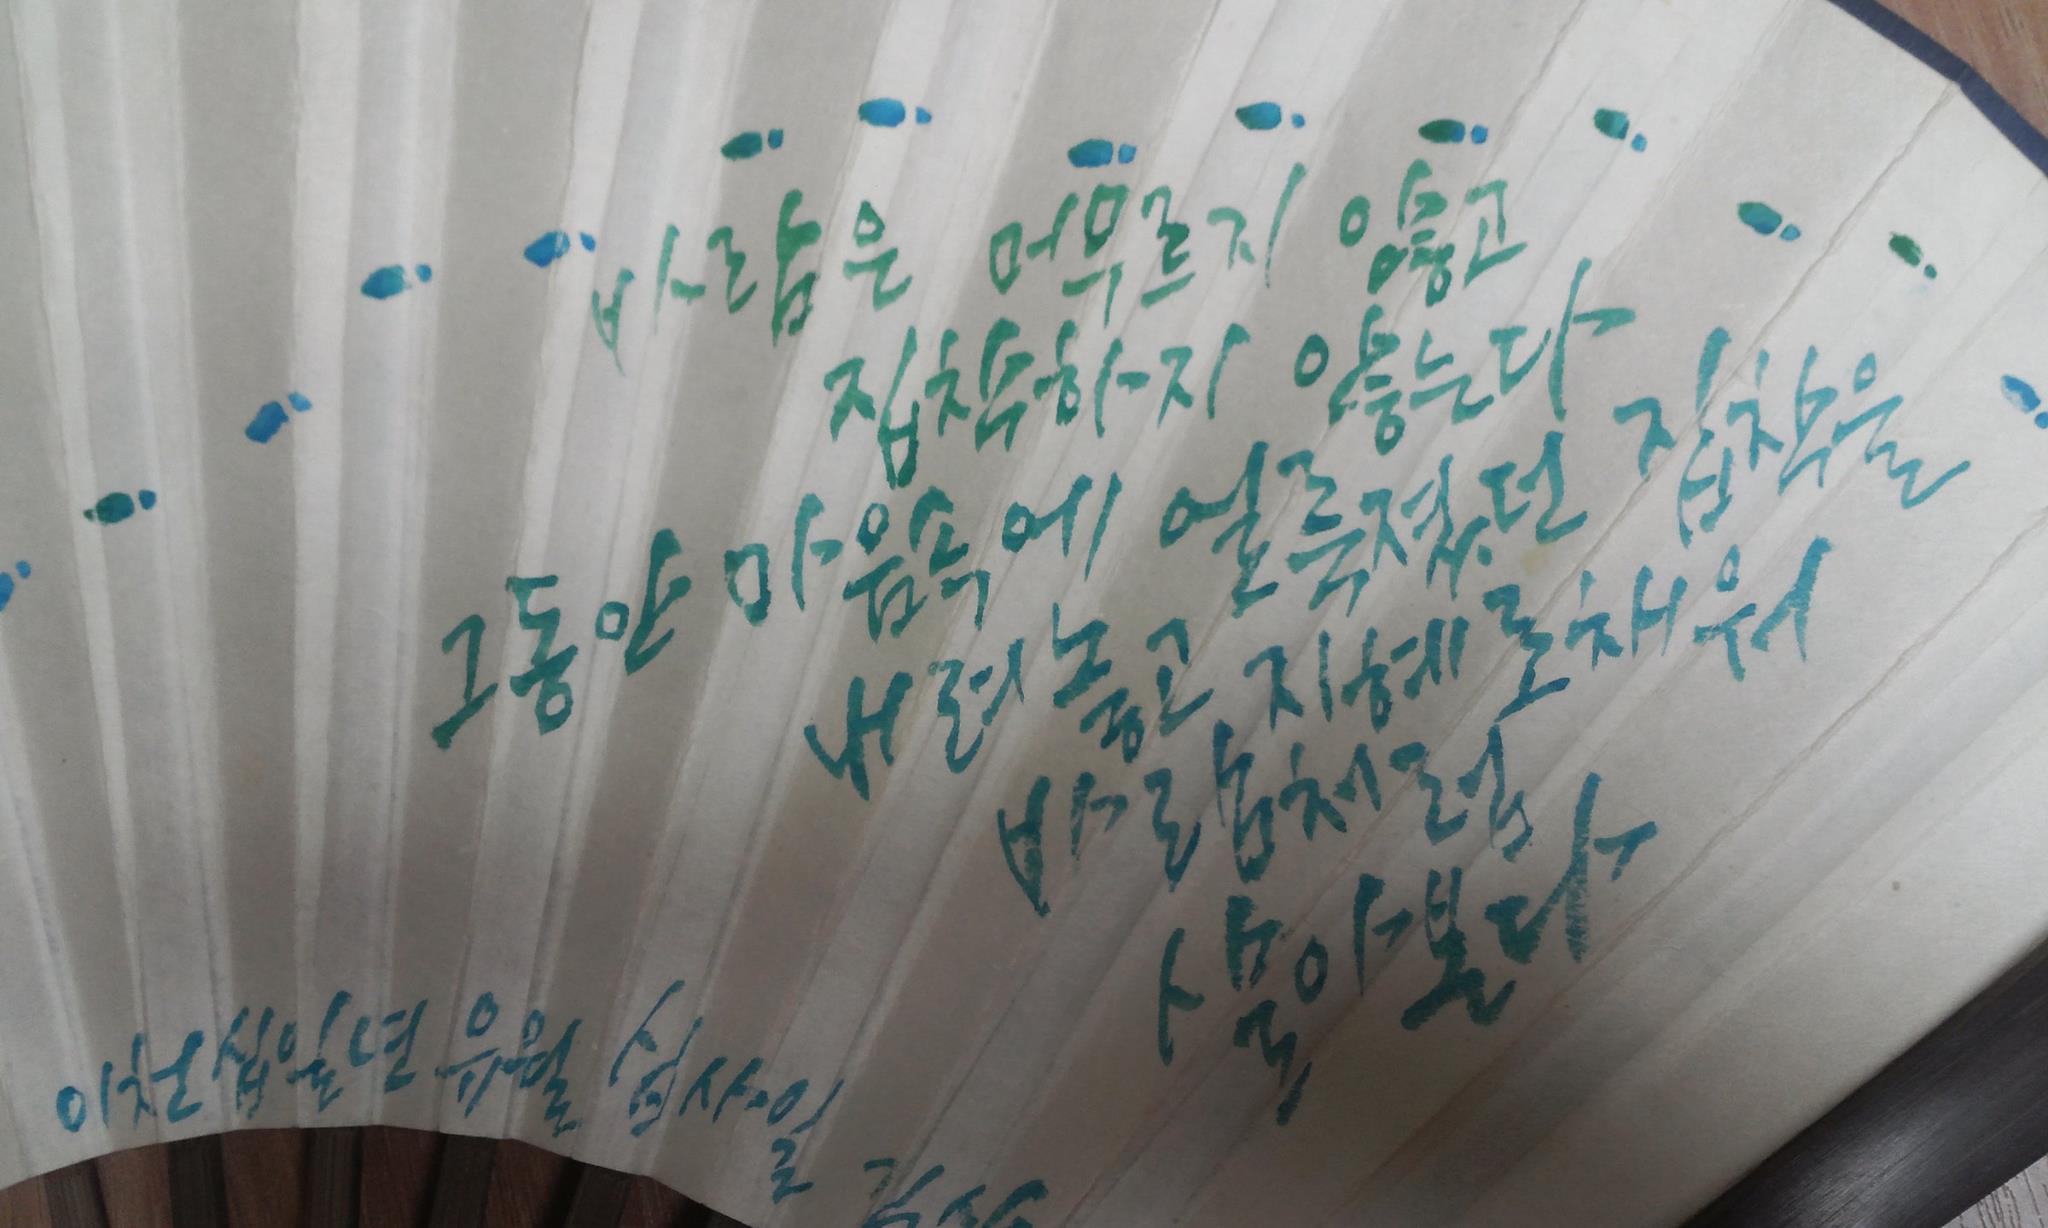 바람은 머무르지 않고
집착하지 않는다
그동안 마음속에 얼룩졌던 집착을
내려놓고 지혜로 채워
바람처럼
살아본다
이천십일년 유월 십사일